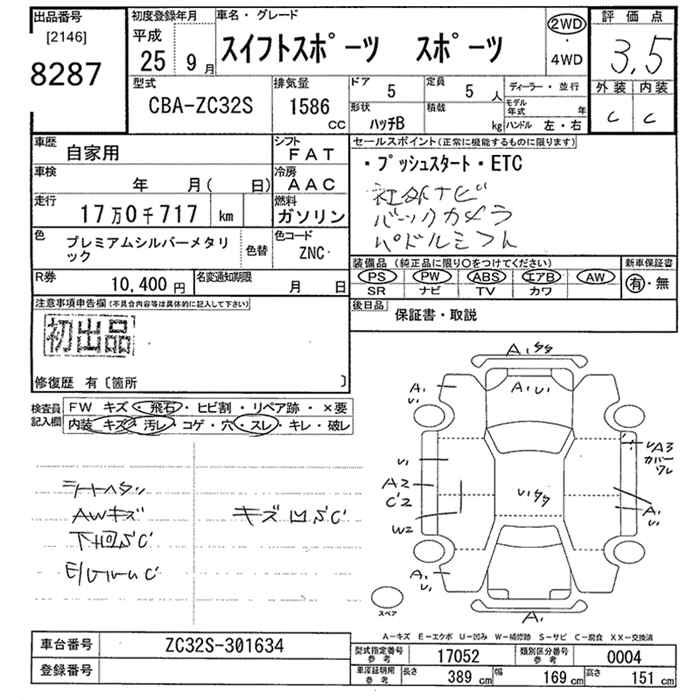 出品番号 初度登録年月 車名・グレード 2WD 評価点
[2146] 平成 スイフトスポーツ スポーツ ・ 3,5
8287 25 9月 4WD 外装 内装
型式 排気量 ドア 定員 ディーラー・並行 C C
CBA-ZC32S 1586 CC 5 5人 モデル年式 年
形状 積載
ハッチB kg ハンドル 左・右
車歴 自家用 シフト FAT セールスポイント(正常に機能するものに限ります)
車検 年 月( 日) 冷房 AAC ・プッシュスタート・ETC
走行 17万0千717 km 燃料 ガソリン 社外ナビ
バックカメラ
パドルシフト
色 プレミアムシルバーメタリック 色替 色コード ZNC
装備品(純正品に限り○をつけてください) 新車保証書
PS PW ABS エアB AW 有・無
SR ナビ TV カワ
R券 10,400円 名変通知期限 月 日
後日品 保証書・取説
注意事項申告欄(不具合内容等は具体的に記入して下さい)
初出品
修復歴 有〔箇所 〕
検査員記入欄 FW キズ・飛石・ヒビ割・リペア跡・×要
内装 キズ・汚レ・コゲ・穴・スレ・キレ・破レ
シートヘタリ
AWキズ キズ凹S'C'
下回S'C'
A,
A,U,
A, U,
U,
A2
C'2
W2
UA3
カバーワレ
A, U,
A, U,
A,
スペア
A-キズ E-エクボ U-凹み W-補修跡 S-サビ C-腐食 XX-交換済
車台番号 ZC32S-301634
登録番号
型式指定番号 参考 17052 類別区分番号 参考 0004
車庫証明用 参考 長さ 389cm 幅 169cm 高さ 151cm